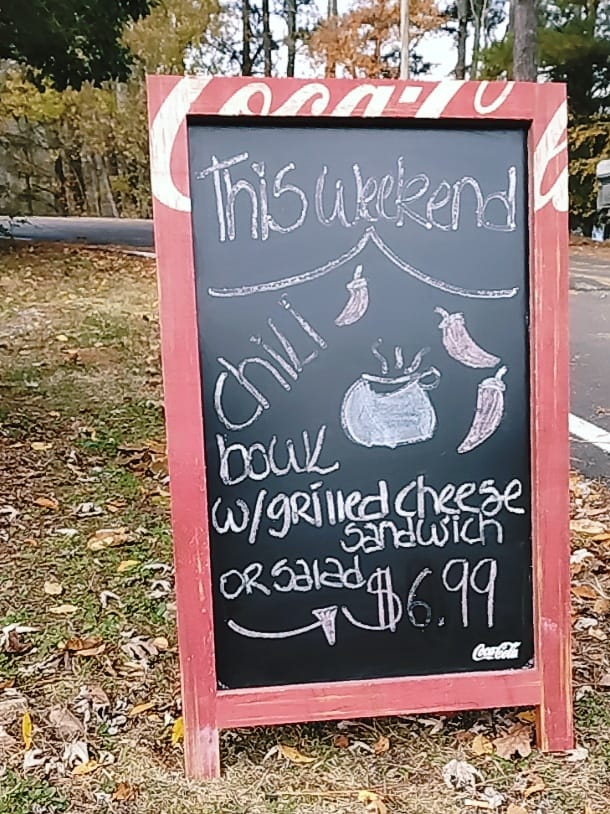 Coca-Cola
This weekend
chili
bowl
w/grilled cheese
sandwich
or salad $6.99
Coca-Cola